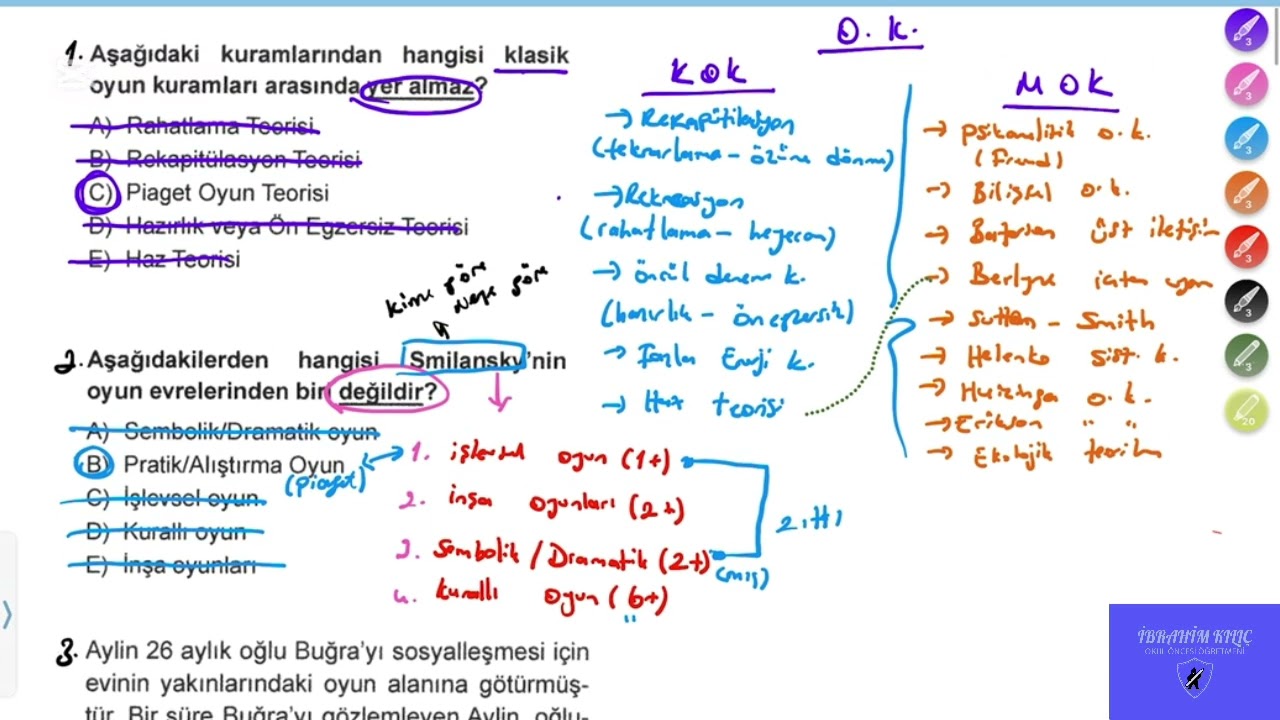 1. Aşağıdaki kuramlarından hangisi klasik
oyun kuramları arasında yer almaz?
A) Rahatlama Teorisi
B) Rekapitülasyon Teorisi
C) Piaget Oyun Teorisi
D) Hazırlık veya Ön Egzersiz Teorisi
E) Haz Teorisi
O. K.
KOK
→ Rekapütilasyon
(tekrarlama - özüne dönme)
→ Rekreasyon
(rahatlama - heyecan)
→ öncül deneme k.
(hazırlık - önegzersiz)
→ Fazla Enerji k.
→ Haz teorisi
MOK
→ Psikanalitik o. k.
(Freud)
→ Bilişsel o. k.
→ Bateson üst iletişim
→ Berlyne içten uyan
→ Sutton - Smith
→ Helenko sist. k.
→ Huizinga o. k.
→ Erikson " "
→ Ekolojik teorilen
kime göre
neye göre
2. Aşağıdakilerden hangisi Smilansky'nin
oyun evrelerinden biri değildir?
A) Sembolik/Dramatik oyun
B) Pratik/Alıştırma Oyun
(piaget)
C) İşlevsel oyun
D) Kurallı oyun
E) İnşa oyunları
1. işlevsel oyun (1+)
2. inşa oyunları (2+)
3. Sembolik / Dramatik (2+)
(mış)
4. kurallı oyun (6+)
zıttı
3. Aylin 26 aylık oğlu Buğra'yı sosyalleşmesi için
evinin yakınlarındaki oyun alanına götürmüş-
tür. Bir süre Buğra'yı gözlemleyen Aylin, oğlu-
3
3
3
3
3
3
3
20
İBRAHİM KILIÇ
OKUL ÖNCESİ ÖĞRETMENİ